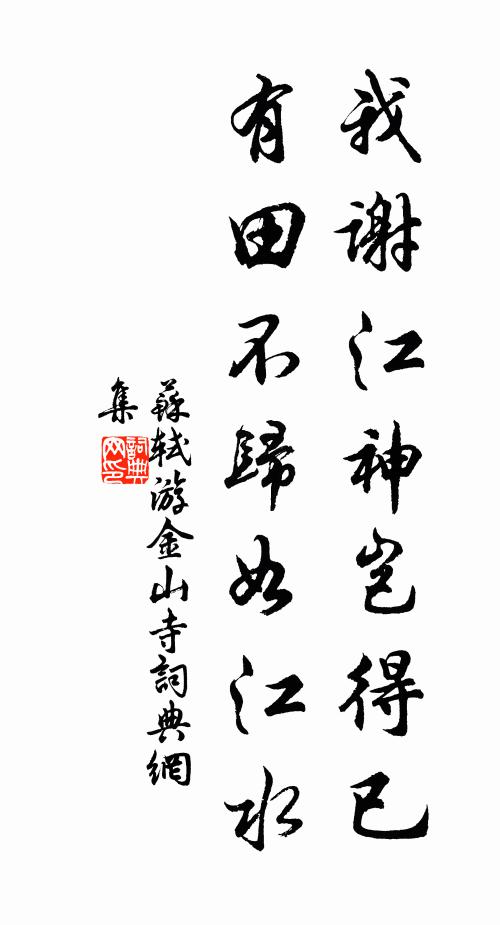 我謝江神豈得已
有田不歸如江水
蘇軾游金山寺詞典網
集
詞典
网印